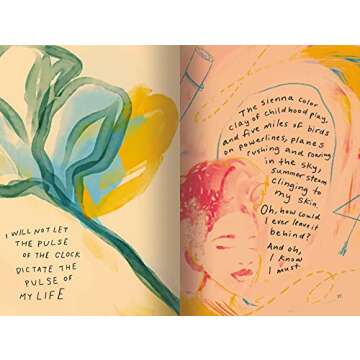 I WILL NOT LET
THE PULSE
OF THE CLOCK
DICTATE THE
PULSE OF
MY LIFE
The sienna color
clay of childhood play,
and five miles of birds
on powerlines, planes
rushing and roaring
in the sky,
summer steam
clinging to
my skin.
Oh, how could
I ever leave it
behind?
And oh,
I know
I must.